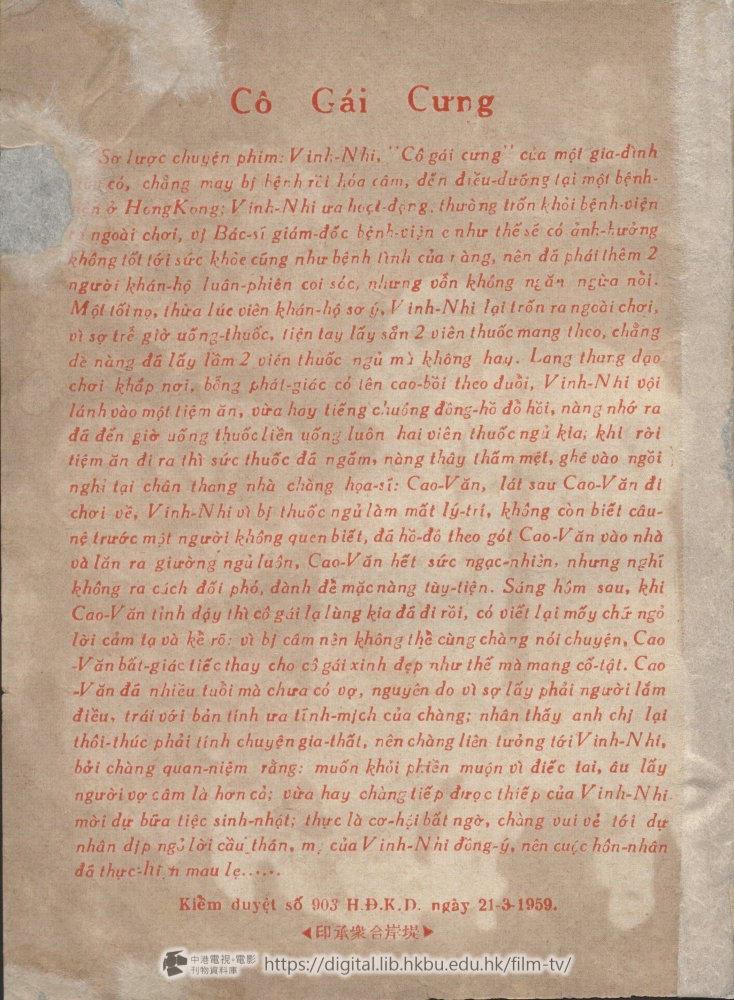 Cô Gái Cưng
Sơ lược chuyện phim: Vinh-Nhi, "Cô gái cưng" của một gia-đình
có, chẳng may bị bệnh rồi hóa câm, đến điều-dưỡng tại một bệnh-
ở HongKong; Vinh-Nhi ưa hoạt-động, thường trốn khỏi bệnh-viện
ngoài chơi, vị Bác-sĩ giám-đốc bệnh-viện e như thế sẽ có ảnh-hưởng
không tốt tới sức khỏe cũng như bệnh tình của nàng, nên đã phái thêm 2
người khán-hộ luân-phiên coi sóc, nhưng vẫn không ngăn ngừa nổi.
Một tối nọ, thừa lúc viên khán-hộ sơ ý, Vinh-Nhi lại trốn ra ngoài chơi,
vì sợ trễ giờ uống-thuốc, tiện tay lấy sẵn 2 viên thuốc mang theo, chẳng
dè nàng đã lấy lầm 2 viên thuốc ngủ mà không hay. Lang thang dạo
chơi khắp nơi, bỗng phát-giác có tên cao-bồi theo đuổi, Vinh-Nhi vội
lánh vào một tiệm ăn, vừa hay tiếng chuông đồng-hồ đổ hồi, nàng nhớ ra
đã đến giờ uống thuốc liền uống luôn hai viên thuốc ngủ kia; khi rời
tiệm ăn đi ra thì sức thuốc đã ngấm, nàng thấy thấm mệt, ghé vào ngồi
nghỉ tại chân thang nhà chàng họa-sĩ: Cao-Văn, lát sau Cao-Văn đi
chơi về, Vinh-Nhi vì bị thuốc ngủ làm mất lý-trí, không còn biết câu-
nệ trước một người không quen biết, đã hồ-đồ theo gót Cao-Văn vào nhà
và lăn ra giường ngủ luôn, Cao-Văn hết sức ngạc-nhiên, nhưng nghĩ
không ra cách đối phó, đành để mặc nàng tùy-tiện. Sáng hôm sau, khi
Cao-Văn tỉnh dậy thì cô gái lạ lùng kia đã đi rồi, có viết lại mấy chữ ngỏ
lời cảm tạ và kể rõ: vì bị câm nên không thể cùng chàng nói chuyện, Cao
-Văn bất-giác tiếc thay cho cô gái xinh đẹp như thế mà mang cố-tật. Cao
-Văn đã nhiều tuổi mà chưa có vợ, nguyên do vì sợ lấy phải người lắm
điều, trái với bản tính ưa tĩnh-mịch của chàng; nhân thấy anh chị lại
thôi-thúc phải tính chuyện gia-thất, nên chàng liên tưởng tới Vinh-Nhi,
bởi chàng quan-niệm rằng: muốn khỏi phiền muộn vì điếc tai, âu lấy
người vợ câm là hơn cả; vừa hay chàng tiếp được thiếp của Vinh-Nhi
mời dự bữa tiệc sinh-nhật; thực là cơ-hội bất ngờ, chàng vui vẻ tới dự
nhân dịp ngỏ lời cầu thân, mẹ của Vinh-Nhi đồng-ý, nên cuộc hôn-nhân
đã thực-hiện mau lẹ......
Kiểm duyệt số 903 H.Đ.K.D. ngày 21-3-1959.
◀印承眾合岸堤▶
中港電視·電影
刊物資料庫
https://digital.lib.hkbu.edu.hk/film-tv/